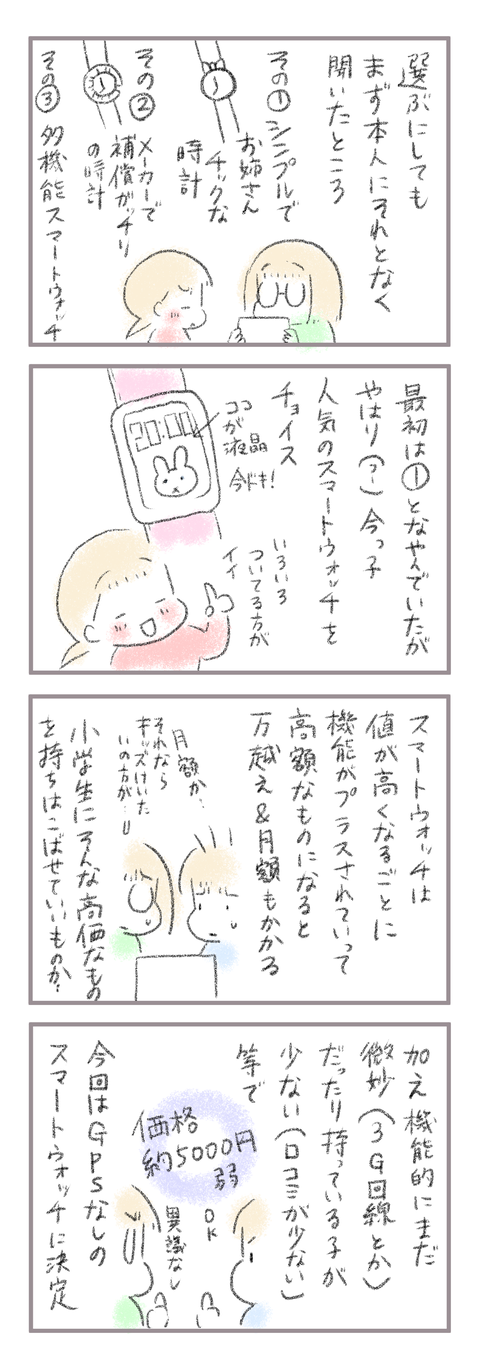 選ぶにしても
まず本人にそれとなく
聞いたところ
その①シンプルで
お姉さん
チックな
時計
その②
メーカーで
補償がッチリ
の時計
その③ 多機能スマートウォッチ
最初は①となやんでいたが
やはり(?)今っ子
人気のスマートウォッチを
チョイス
20:00
ココ
が
液晶
今ドキ!
いろいろ
ついてる方が
イイ
スマートウォッチは
値が高くなるごとに
機能がプラスされていって
高額なものになると
万越え&月額もかかる
月額か、
それなら
キッズけいた
いの方が…
小学生にそんな高価なもの
を持ちはこばせていいものか?
加え機能的にまだ
微妙(3G回線とか)
だったり持っている子が
少ない(口コミが少ない)
等で
価格
約5000円
弱
OK
異議なし
今回はGPSなしの
スマートウォッチに決定